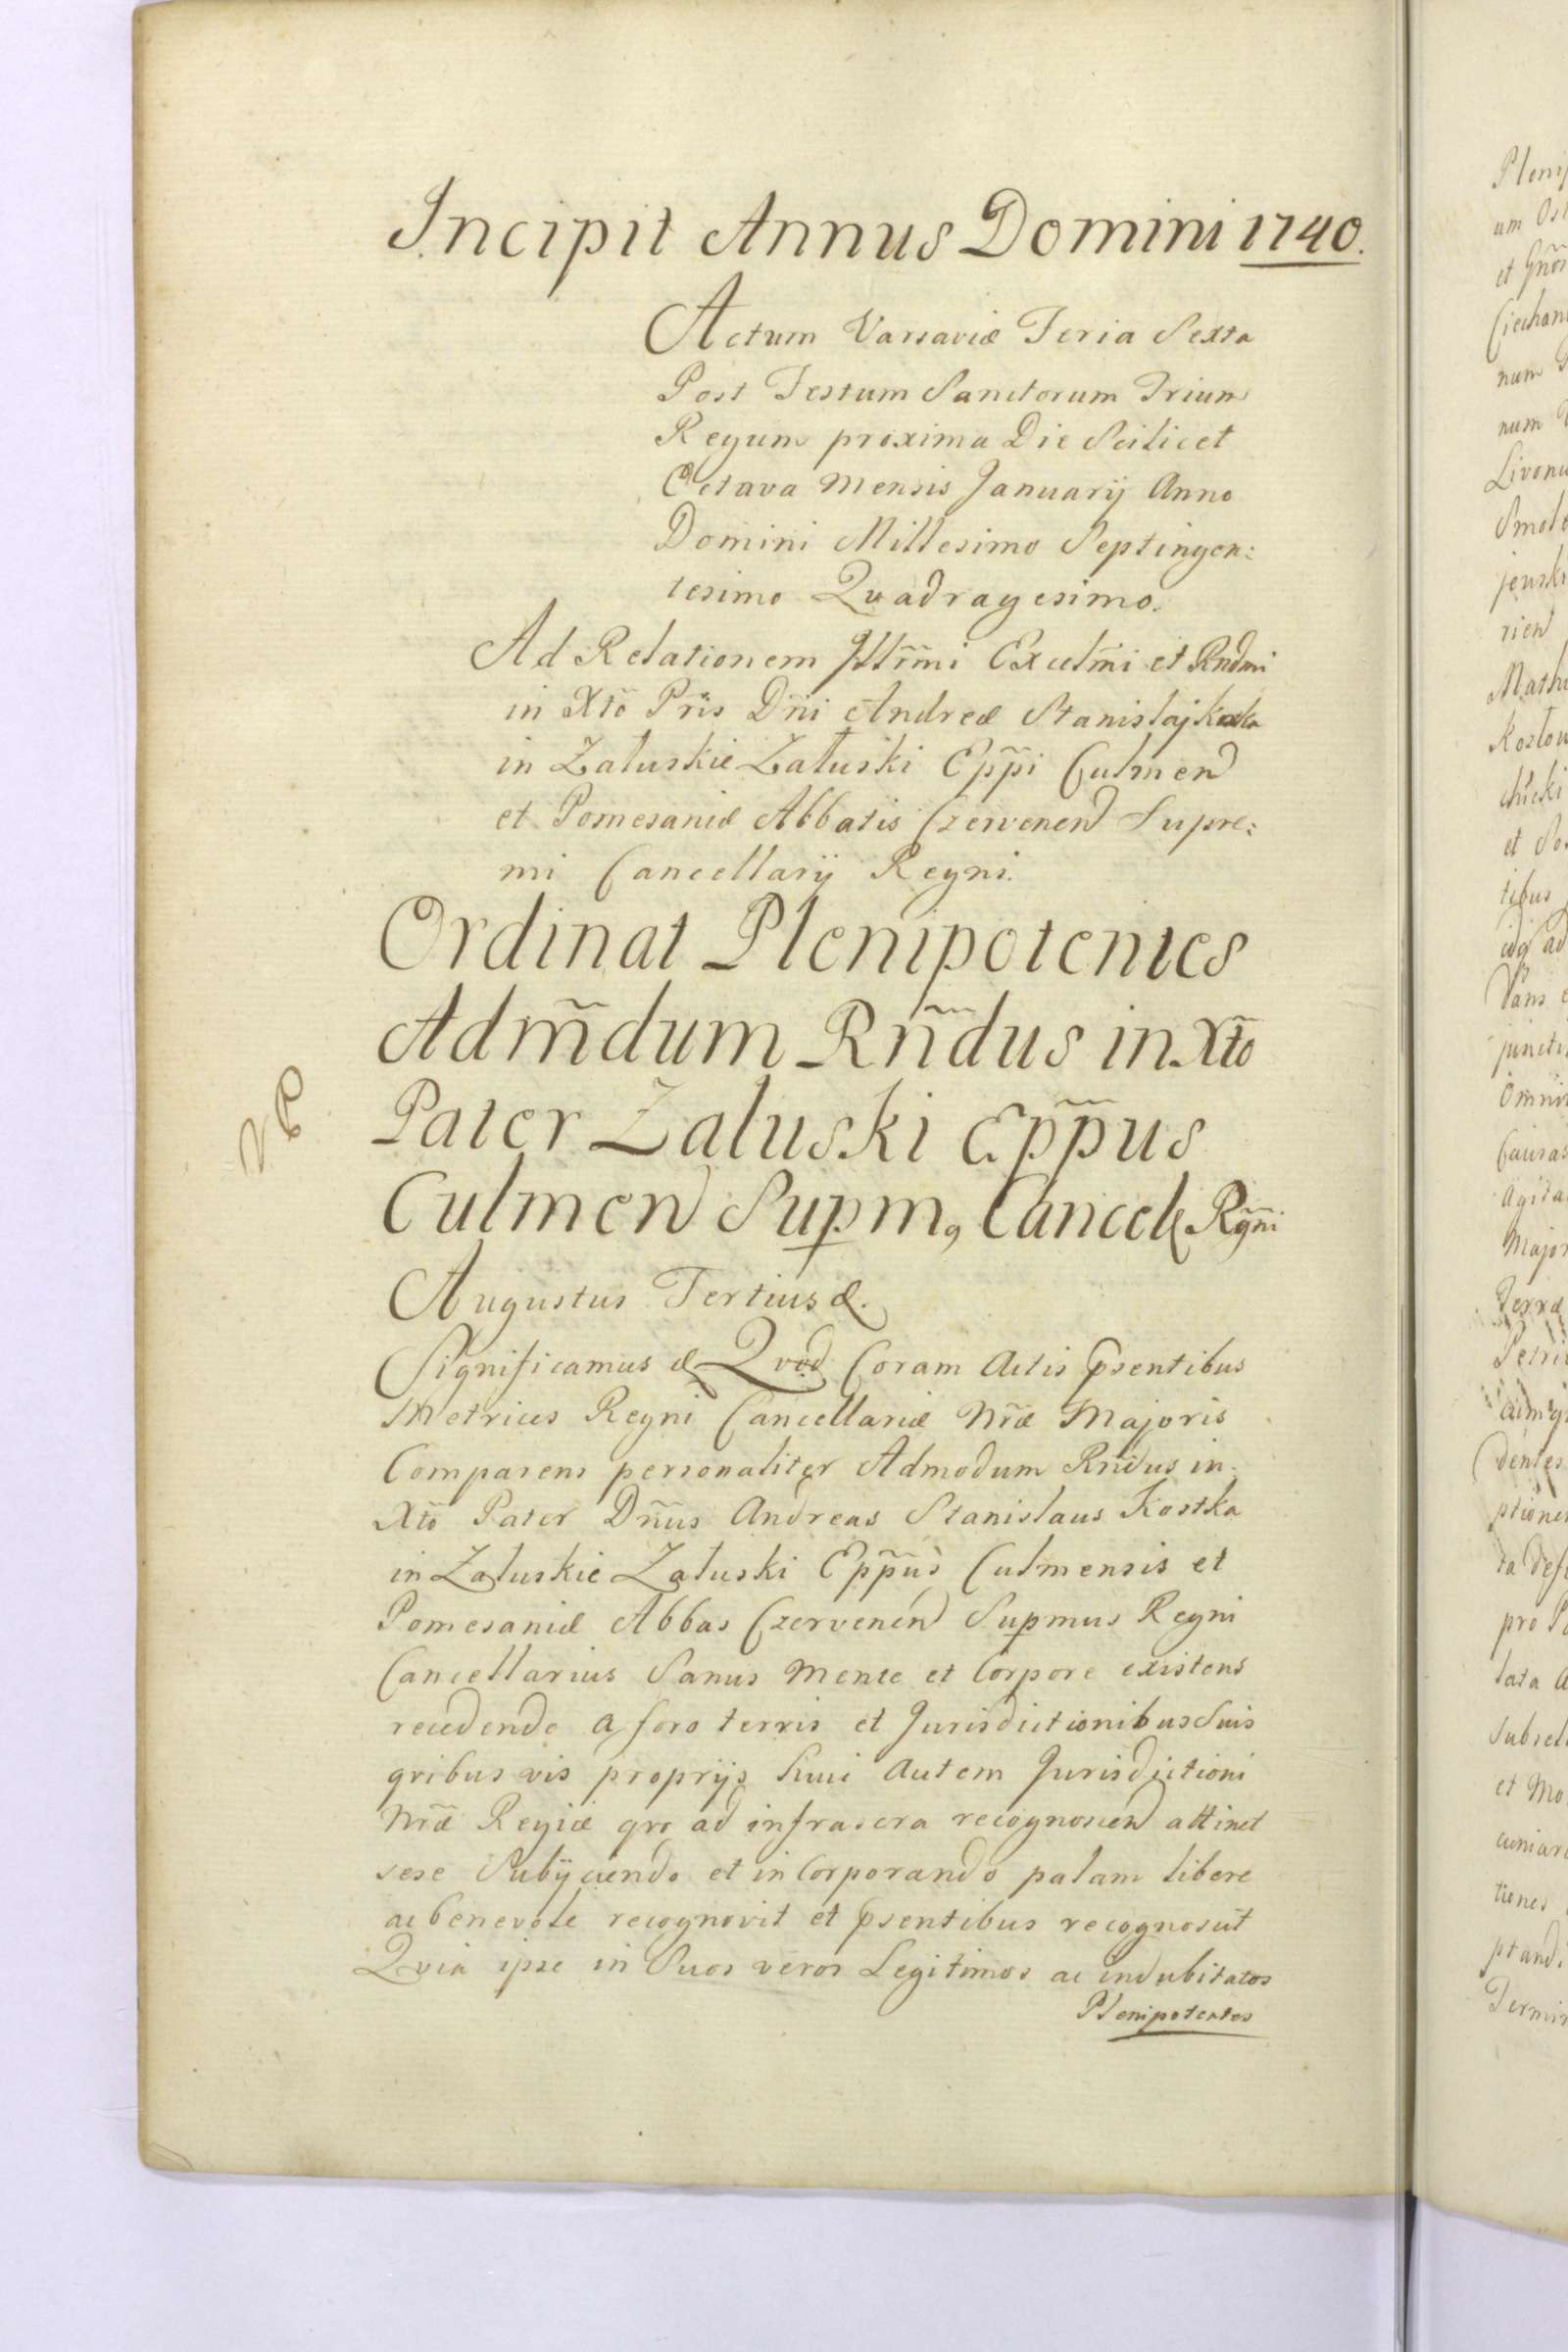 Incipit Annus Domini 1740.
Actum Varsaviæ Feria Sexta
Post Festum Sanctorum Trium
Regum proxima Die Scilicet
Octava Mensis Januarij Anno
Domini Millesimo Septingen:
tesimo Quadragesimo.
Ad Relationem Illr̃mi Excelm̃i et Rndmi
in Xtõ Pris Dñi Andreæ Stanislaj Kostka
in Załuskie Załuski Epp̃i Culmen
et Pomesaniæ Abbatis Czervenen Supre:
mi Cancellarij Regni.
Ordinat Plenipotentes
Adm̃dum Rñdus in Xtõ
Pater Zaluski Epp̃us
Culmen Supm, Cancel Rgñi
Augustus Tertius &.
Significamus & Qvod Coram Actis Psentibus
Metrices Regni Cancellariæ Nr̃æ Majoris
Comparens personaliter Admodum Rñdus in
Xtõ Pater Dñus Andreas Stanislaus Kostka
in Załuskie Załuski Epp̃us Culmensis et
Pomesaniæ Abbas Czervenen Supmus Regni
Cancellarius Sanus Mente et Corpore existens
recedendo a foro terris et Jurisdictionibus Suis
qvibus vis proprijs huic autem Jurisdictioni
Nr̃æ Regiæ qvo ad infrascra recognoscen attinet
sese Subijciendo et incorporando palam libere
ac benevole recognovit et Psentibus recognoscit
Qvia ipse in Suos veros Legitimos ac indubitatos
Plenipotentes